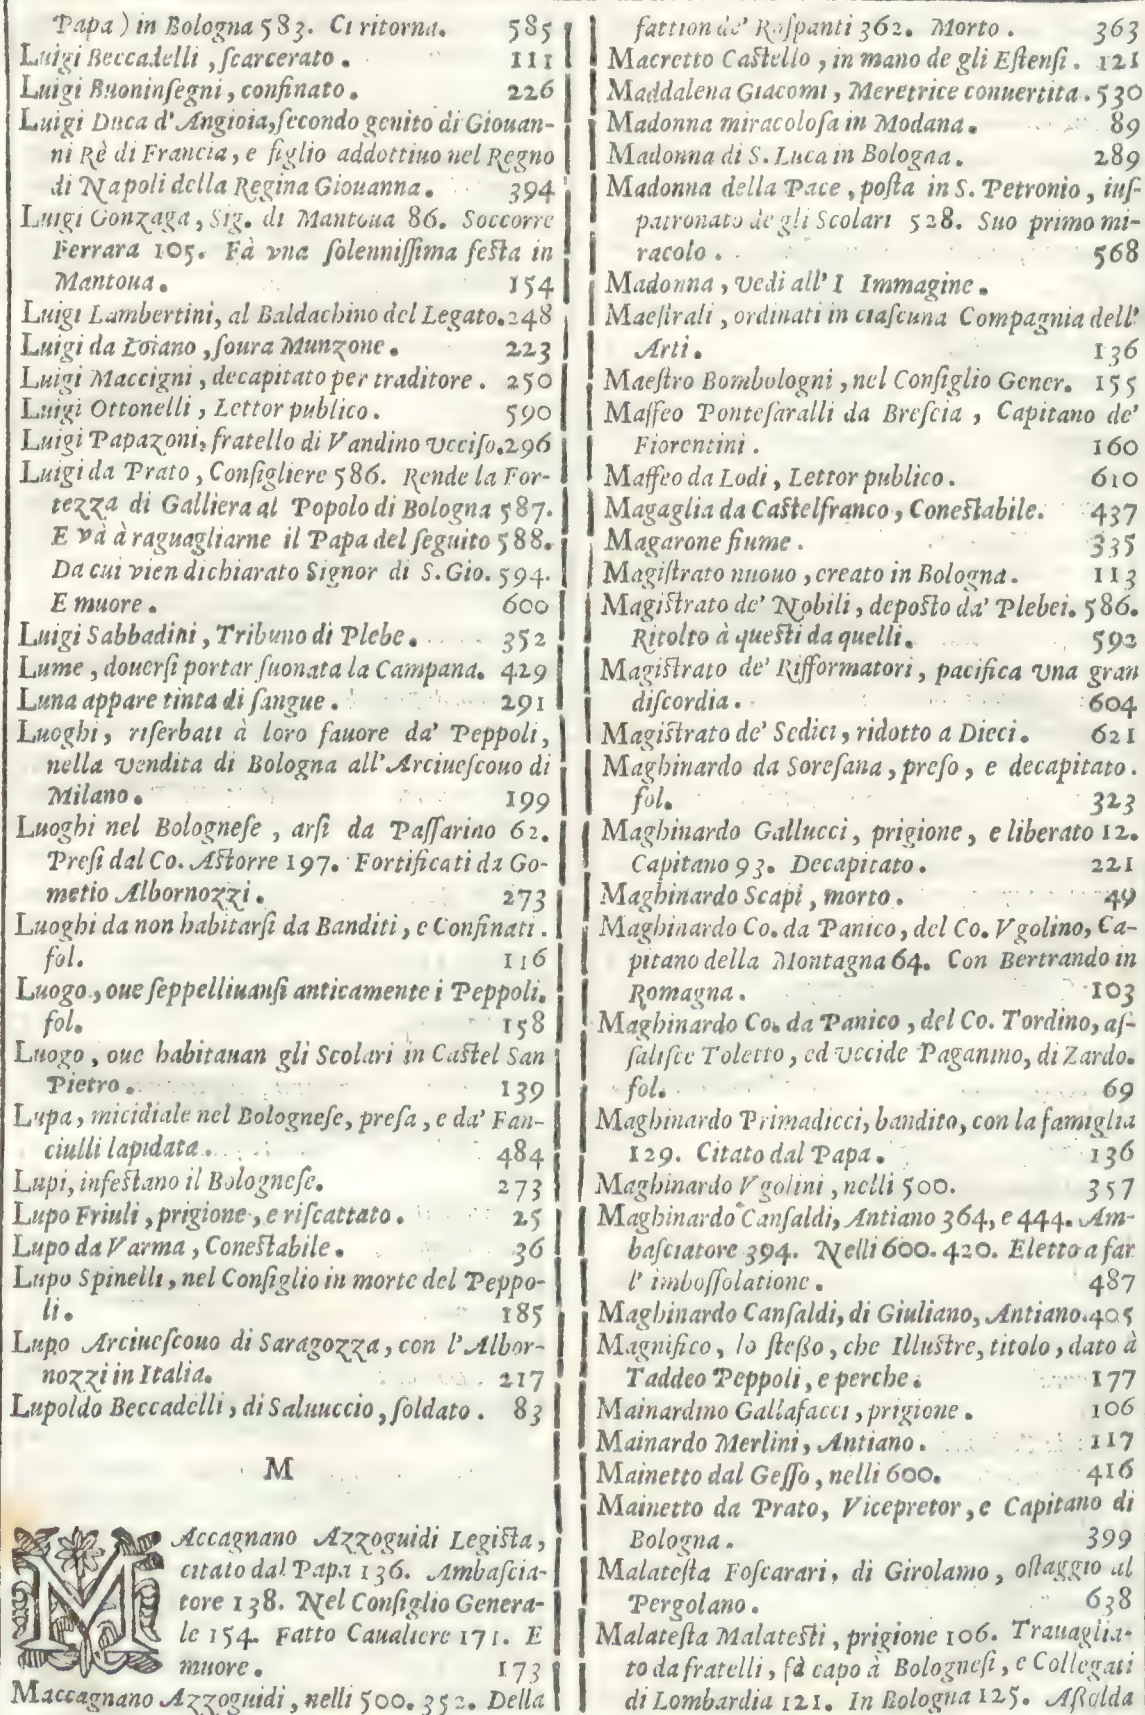 Papa) in Bologna 583. Ci ritorna. 585
Luigi Beccadelli, ſcarcerato. 111
Luigi Buoninſegni, confinato. 226
Luigi Duca d'Angioia, ſecondo genito di Giouan-
ni Rè di Francia, e figlio addottiuo nel Regno
di Napoli della Regina Giouanna. 394
Luigi Gonzaga, Sig. di Mantoua 86. Soccorre
Ferrara 105. Fà vna ſolenniſſima feſta in
Mantoua. 154
Luigi Lambertini, al Baldachino del Legato. 248
Luigi da Loiano, ſoura Munzone. 223
Luigi Maccigni, decapitato per traditore. 250
Luigi Ottonelli, Lettor publico. 590
Luigi Papazoni, fratello di Vandino vcciſo. 296
Luigi da Prato, Conſigliere 586. Rende la For-
tezza di Galliera al Popolo di Bologna 587.
E và à raguagliarne il Papa del ſeguito 588.
Da cui vien dichiarato Signor di S. Gio. 594.
E muore. 600
Luigi Sabbadini, Tribuno di Plebe. 352
Lume, douerſi portar ſuonata la Campana. 429
Luna appare tinta di ſangue. 291
Luoghi, riſerbati à loro fauore da' Peppoli,
nella vendita di Bologna all'Arciueſcouo di
Milano. 199
Luoghi nel Bologneſe, arſi da Paſſarino 62.
Preſi dal Co. Aſtorre 197. Fortificati da Go-
metio Albornozzi. 273
Luoghi da non habitarſi da Banditi, e Confinati.
fol. 116
Luogo, oue ſeppelliuanſi anticamente i Peppoli.
fol. 158
Luogo, oue habitauan gli Scolari in Caſtel San
Pietro. 139
Lupa, micidiale nel Bologneſe, preſa, e da' Fan-
ciulli lapidata. 484
Lupi, infeſtano il Bologneſe. 273
Lupo Friuli, prigione, e riſcattato. 25
Lupo da Varma, Coneſtabile. 36
Lupo Spinelli, nel Conſiglio in morte del Peppo-
li. 185
Lupo Arciueſcouo di Saragozza, con l'Albor-
nozzi in Italia. 217
Lupoldo Beccadelli, di Saluuccio, ſoldato. 83
M
MAccagnano Azzoguidi Legiſta,
citato dal Papa 136. Ambaſcia-
tore 138. Nel Conſiglio Genera-
le 154. Fatto Caualiere 171. E
muore. 173
Maccagnano Azzoguidi, nelli 500. 352. Della
fattion de' Raſpanti 362. Morto. 363
Macretto Caſtello, in mano de gli Eſtenſi. 121
Maddalena Giacomi, Meretrice conuertita. 530
Madonna miracoloſa in Modana. 89
Madonna di S. Luca in Bologna. 289
Madonna della Pace, poſta in S. Petronio, iuſ-
patronato de gli Scolari 528. Suo primo mi-
racolo. 568
Madonna, vedi all' I Immagine.
Maeſtrali, ordinati in ciaſcuna Compagnia dell'
Arti. 136
Maeſtro Bombologni, nel Conſiglio Gener. 155
Maffeo Ponteſaralli da Breſcia, Capitano de'
Fiorentini. 160
Maffeo da Lodi, Lettor publico. 610
Magaglia da Caſtelfranco, Coneſtabile. 437
Magarone fiume. 335
Magiſtrato nuouo, creato in Bologna. 113
Magiſtrato de' Nobili, depoſto da' Plebei. 586.
Ritolto à queſti da quelli. 592
Magiſtrato de' Rifformatori, pacifica vna gran
diſcordia. 604
Magiſtrato de' Sedici, ridotto a Dieci. 621
Maghinardo da Soreſana, preſo, e decapitato.
fol. 323
Maghinardo Gallucci, prigione, e liberato 12.
Capitano 93. Decapitato. 221
Maghinardo Scapi, morto. 49
Maghinardo Co. da Panico, del Co. Vgolino, Ca-
pitano della Montagna 64. Con Bertrando in
Romagna. 103
Maghinardo Co. da Panico, del Co. Tordino, aſ-
ſaliſce Toletto, ed vccide Paganino, di Zardo.
fol. 69
Maghinardo Primadicci, bandito, con la famiglia
129. Citato dal Papa. 136
Maghinardo Vgolini, nelli 500. 357
Maghinardo Canſaldi, Antiano 364, e 444. Am-
baſciatore 394. Nelli 600. 420. Eletto a far
l' imboſſolatione. 487
Maghinardo Canſaldi, di Giuliano, Antiano. 405
Magnifico, lo ſteßo, che Illuſtre, titolo, dato à
Taddeo Peppoli, e perche. 177
Mainardino Gallafacci, prigione. 106
Mainardo Merlini, Antiano. 117
Mainetto dal Geſſo, nelli 600. 416
Mainetto da Prato, Vicepretor, e Capitano di
Bologna. 399
Malateſta Foſcarari, di Girolamo, oſtaggio al
Pergolano. 638
Malateſta Malateſti, prigione 106. Trauaglia-
to da fratelli, fà capo à Bologneſi, e Collegati
di Lombardia 121. In Bologna 125. Aſſalda